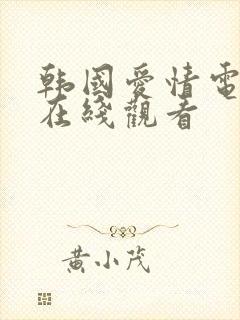 韩國愛情電
在綫觀看
黃小茂